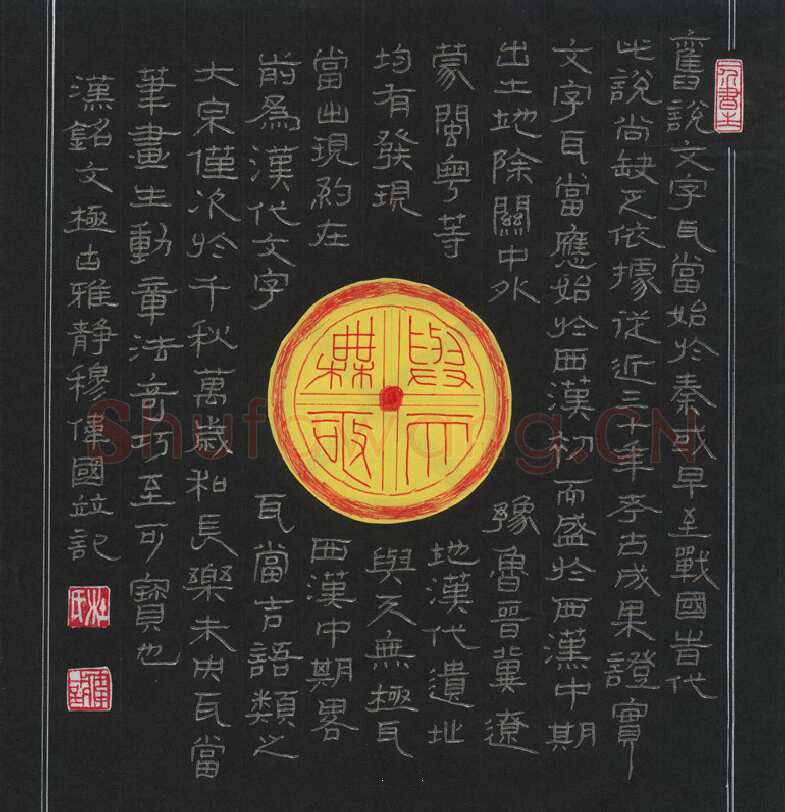 舊說文字瓦當始於秦或早至戰國旹代
此說尚缺乏依據從近三十年考古成果證實
文字瓦當應始於西漢初而盛於西漢中期
出土地除關中外豫魯晉冀遼
蒙閩粵等地漢代遺址
均有發現與天無極瓦
當出現約在西漢中期畧
前爲漢代文字瓦當吉語類之
大宗僅次於千秋萬歲和長樂未央瓦當
筆畫生動章法奇巧至可寶也
漢銘文極古雅靜穆偉國竝記
與天無極
杜氏
Shufawang.CN